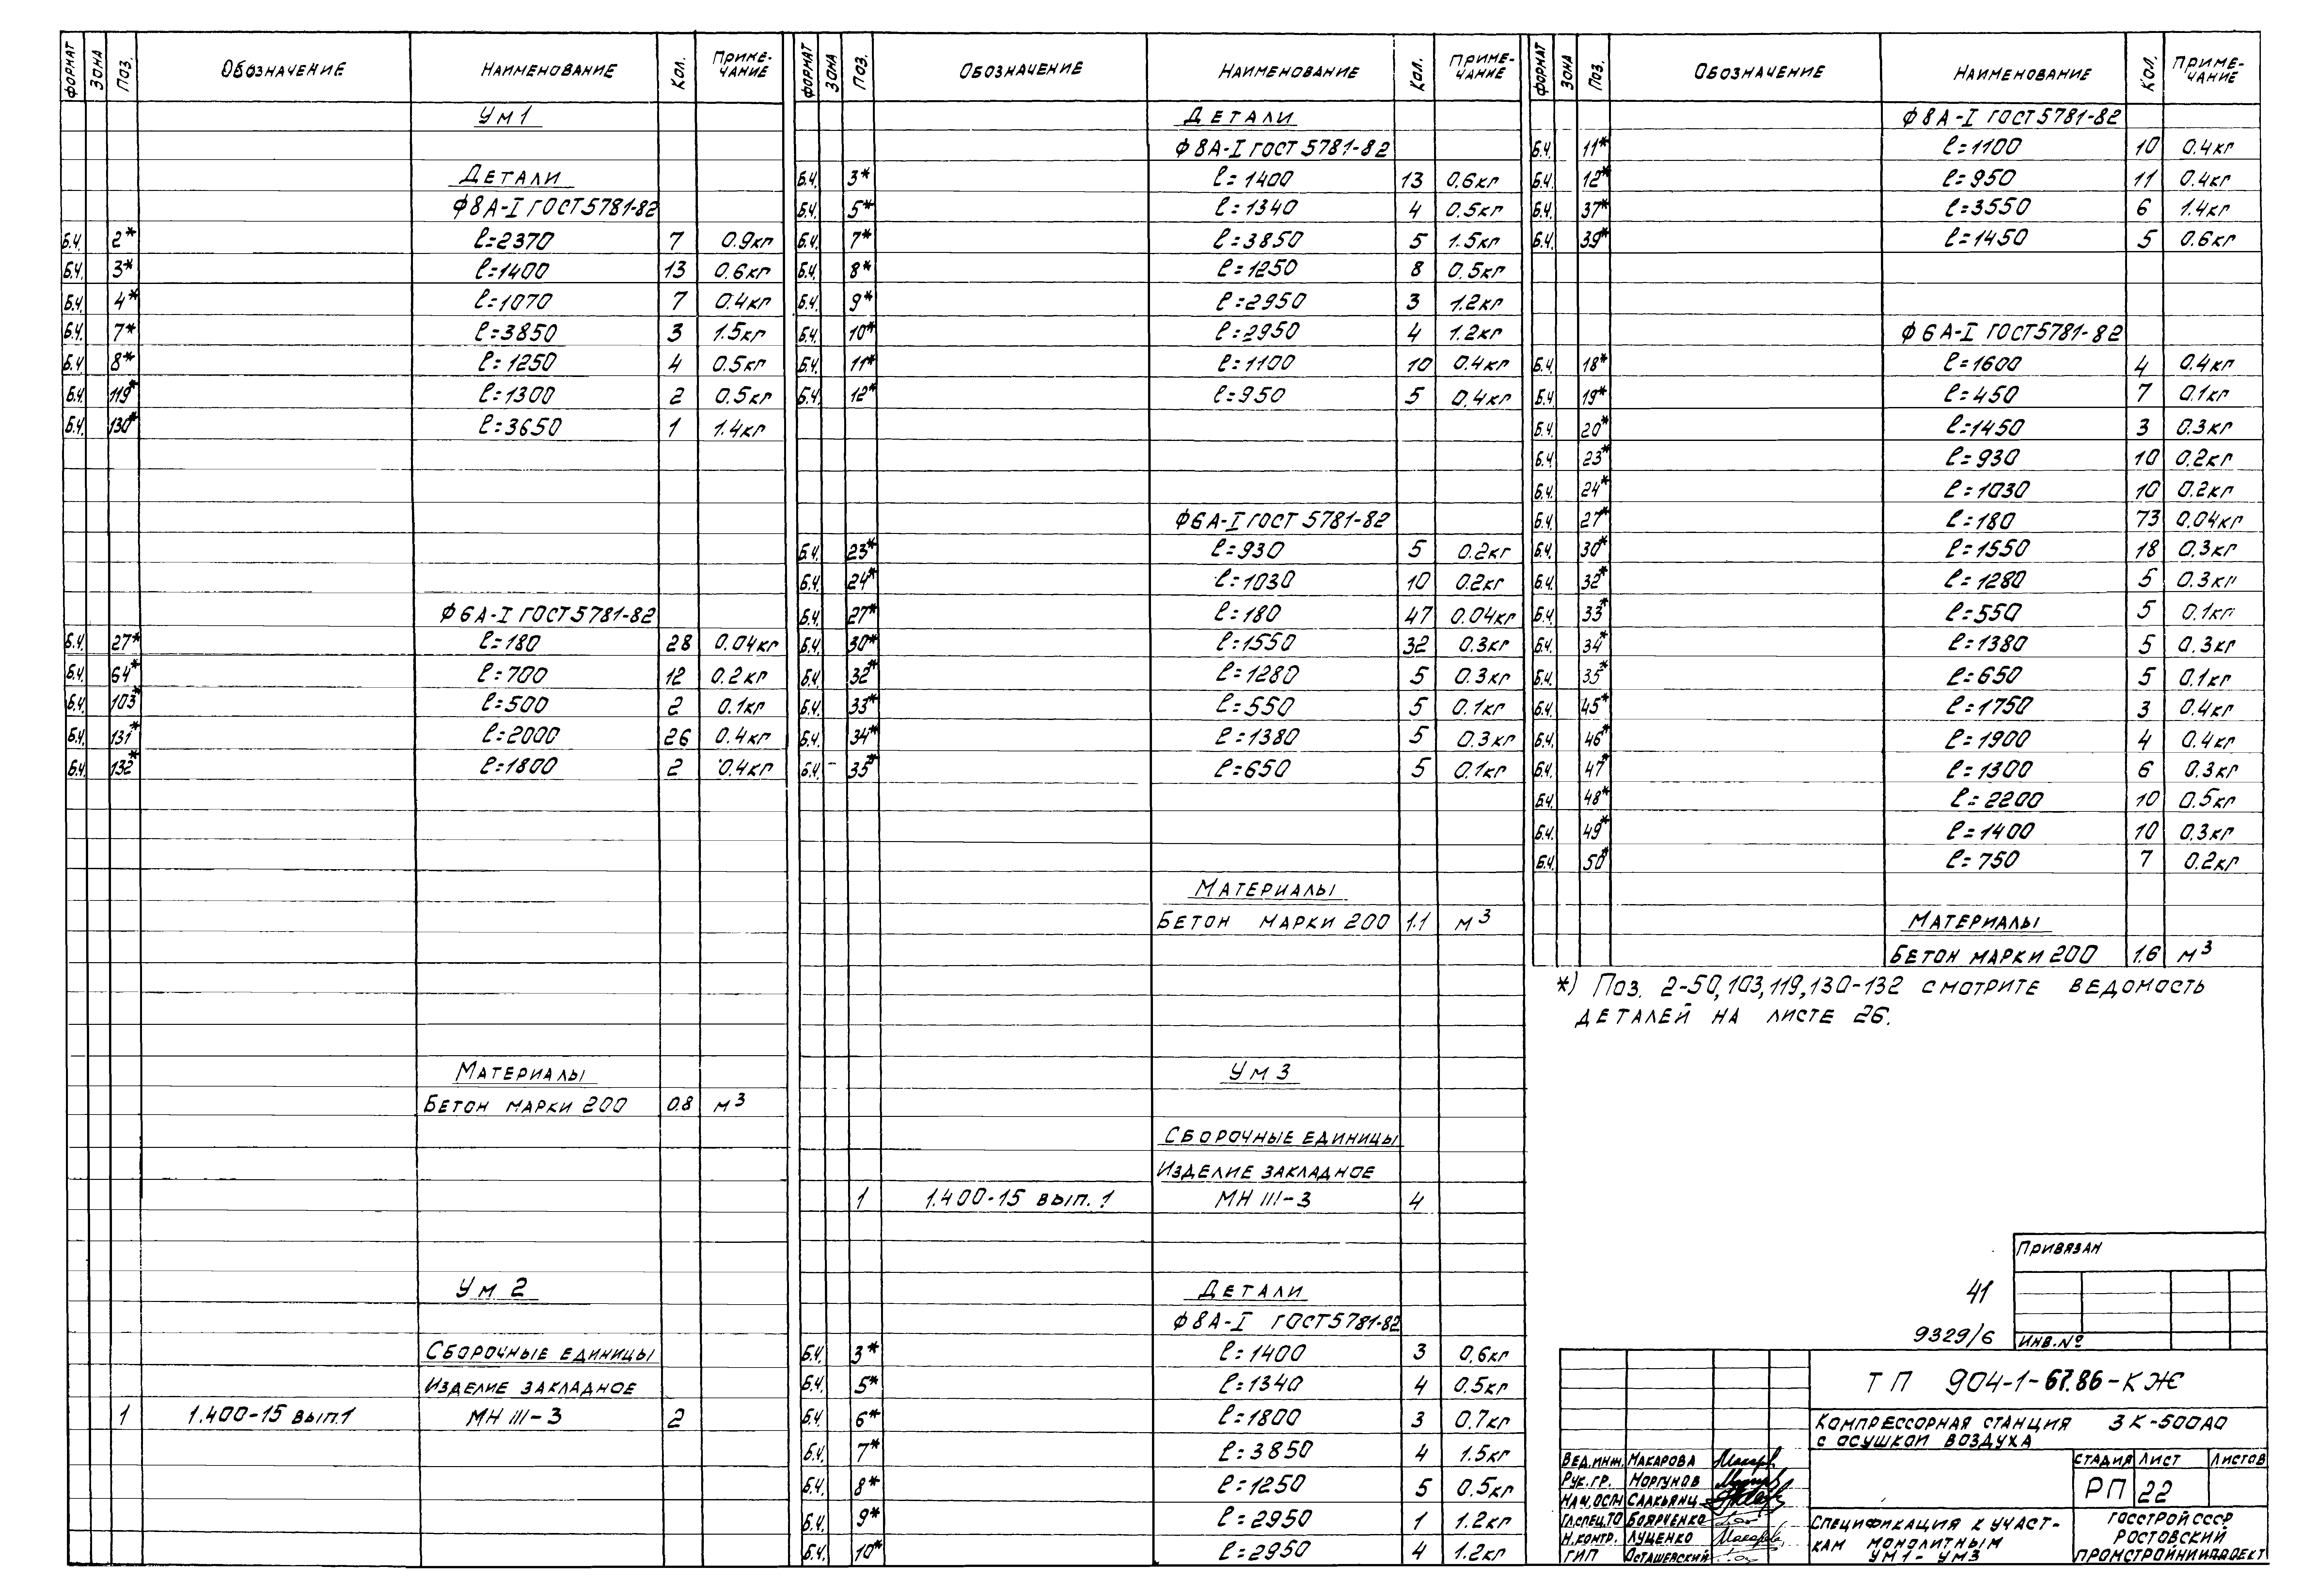 Формат Зона Поз. Обозначение Наименование Кол. Приме-
чание
Ум1
Детали
Ф8А-I ГОСТ 5781-82
Б.Ч. 2* ℓ=2370 7 0.9кг
Б.Ч. 3* ℓ=1400 13 0.6кг
Б.Ч. 4* ℓ=1070 7 0.4кг
Б.Ч. 7* ℓ=3850 3 1.5кг
Б.Ч. 8* ℓ=1250 4 0.5кг
Б.Ч. 119* ℓ=1300 2 0.5кг
Б.Ч. 130* ℓ=3650 1 1.4кг
Ф6А-I ГОСТ 5781-82
Б.Ч. 27* ℓ=180 28 0.04кг
Б.Ч. 64* ℓ=700 12 0.2кг
Б.Ч. 103* ℓ=500 2 0.1кг
Б.Ч. 131* ℓ=2000 26 0.4кг
Б.Ч. 132* ℓ=1800 2 0.4кг
Материалы
Бетон марки 200 0.8 м³
Ум 2
Сборочные единицы
Изделие закладное
1 1.400-15 вып.1 МН III-3 2
Формат Зона Поз. Обозначение Наименование Кол. Приме-
чание
Детали
Ф8А-I ГОСТ 5781-82
Б.Ч. 3* ℓ=1400 13 0.6кг
Б.Ч. 5* ℓ=1340 4 0.5кг
Б.Ч. 7* ℓ=3850 5 1.5кг
Б.Ч. 8* ℓ=1250 8 0.5кг
Б.Ч. 9* ℓ=2950 3 1.2кг
Б.Ч. 10* ℓ=2950 4 1.2кг
Б.Ч. 11* ℓ=1100 10 0.4кг
Б.Ч. 12* ℓ=950 5 0.4кг
Ф6А-I ГОСТ 5781-82
Б.Ч. 23* ℓ=930 5 0.2кг
Б.Ч. 24* ℓ=1030 10 0.2кг
Б.Ч. 27* ℓ=180 47 0.04кг
Б.Ч. 30* ℓ=1550 32 0.3кг
Б.Ч. 32* ℓ=1280 5 0.3кг
Б.Ч. 33* ℓ=550 5 0.1кг
Б.Ч. 34* ℓ=1380 5 0.3кг
Б.Ч. 35* ℓ=650 5 0.1кг
Материалы
Бетон марки 200 1.1 м³
Ум 3
Сборочные единицы
Изделие закладное
1 1.400-15 вып. 1 МН III-3 4
Детали
Ф8А-I ГОСТ 5781-82
Б.Ч. 3* ℓ=1400 3 0.6кг
Б.Ч. 5* ℓ=1340 4 0.5кг
Б.Ч. 6* ℓ=1800 3 0.7кг
Б.Ч. 7* ℓ=3850 4 1.5кг
Б.Ч. 8* ℓ=1250 5 0.5кг
Б.Ч. 9* ℓ=2950 1 1.2кг
Б.Ч. 10* ℓ=2950 4 1.2кг
Формат Зона Поз. Обозначение Наименование Кол. Приме-
чание
Ф8А-I ГОСТ 5781-82
Б.Ч. 11* ℓ=1100 10 0.4кг
Б.Ч. 12* ℓ=950 11 0.4кг
Б.Ч. 37* ℓ=3550 6 1.4кг
Б.Ч. 39* ℓ=1450 5 0.6кг
Ф6А-I ГОСТ 5781-82
Б.Ч. 18* ℓ=1600 4 0.4кг
Б.Ч. 19* ℓ=450 7 0.1кг
Б.Ч. 20* ℓ=1450 3 0.3кг
Б.Ч. 23* ℓ=930 10 0.2кг
Б.Ч. 24* ℓ=1030 10 0.2кг
Б.Ч. 27* ℓ=180 73 0.04кг
Б.Ч. 30* ℓ=1550 18 0.3кг
Б.Ч. 32* ℓ=1280 5 0.3кг
Б.Ч. 33* ℓ=550 5 0.1кг
Б.Ч. 34* ℓ=1380 5 0.3кг
Б.Ч. 35* ℓ=650 5 0.1кг
Б.Ч. 45* ℓ=1750 3 0.4кг
Б.Ч. 46* ℓ=1900 4 0.4кг
Б.Ч. 47* ℓ=1300 6 0.3кг
Б.Ч. 48* ℓ=2200 10 0.5кг
Б.Ч. 49* ℓ=1400 10 0.3кг
Б.Ч. 50* ℓ=750 7 0.2кг
Материалы
Бетон марки 200 1.6 м³
*) Поз. 2-50,103,119,130-132 смотрите ведомость
деталей на листе 26.
Привязан
41
9329/6 Инв.№
ТП 904-1-67.86-КЖ
Компрессорная станция 3К-500АО
с осушкой воздуха
Вед.инж. Макарова
Рук.гр. Моргунов
Нач.осп Саакьянц
Гл.спец.ТО Боярченко
Н.контр. Луценко
ГИП Осташевский
Стадия Лист Листов
РП 22
Спецификация к участ-
кам монолитным
Ум1-Ум3
Госстрой СССР
Ростовский
Промстройниипроект